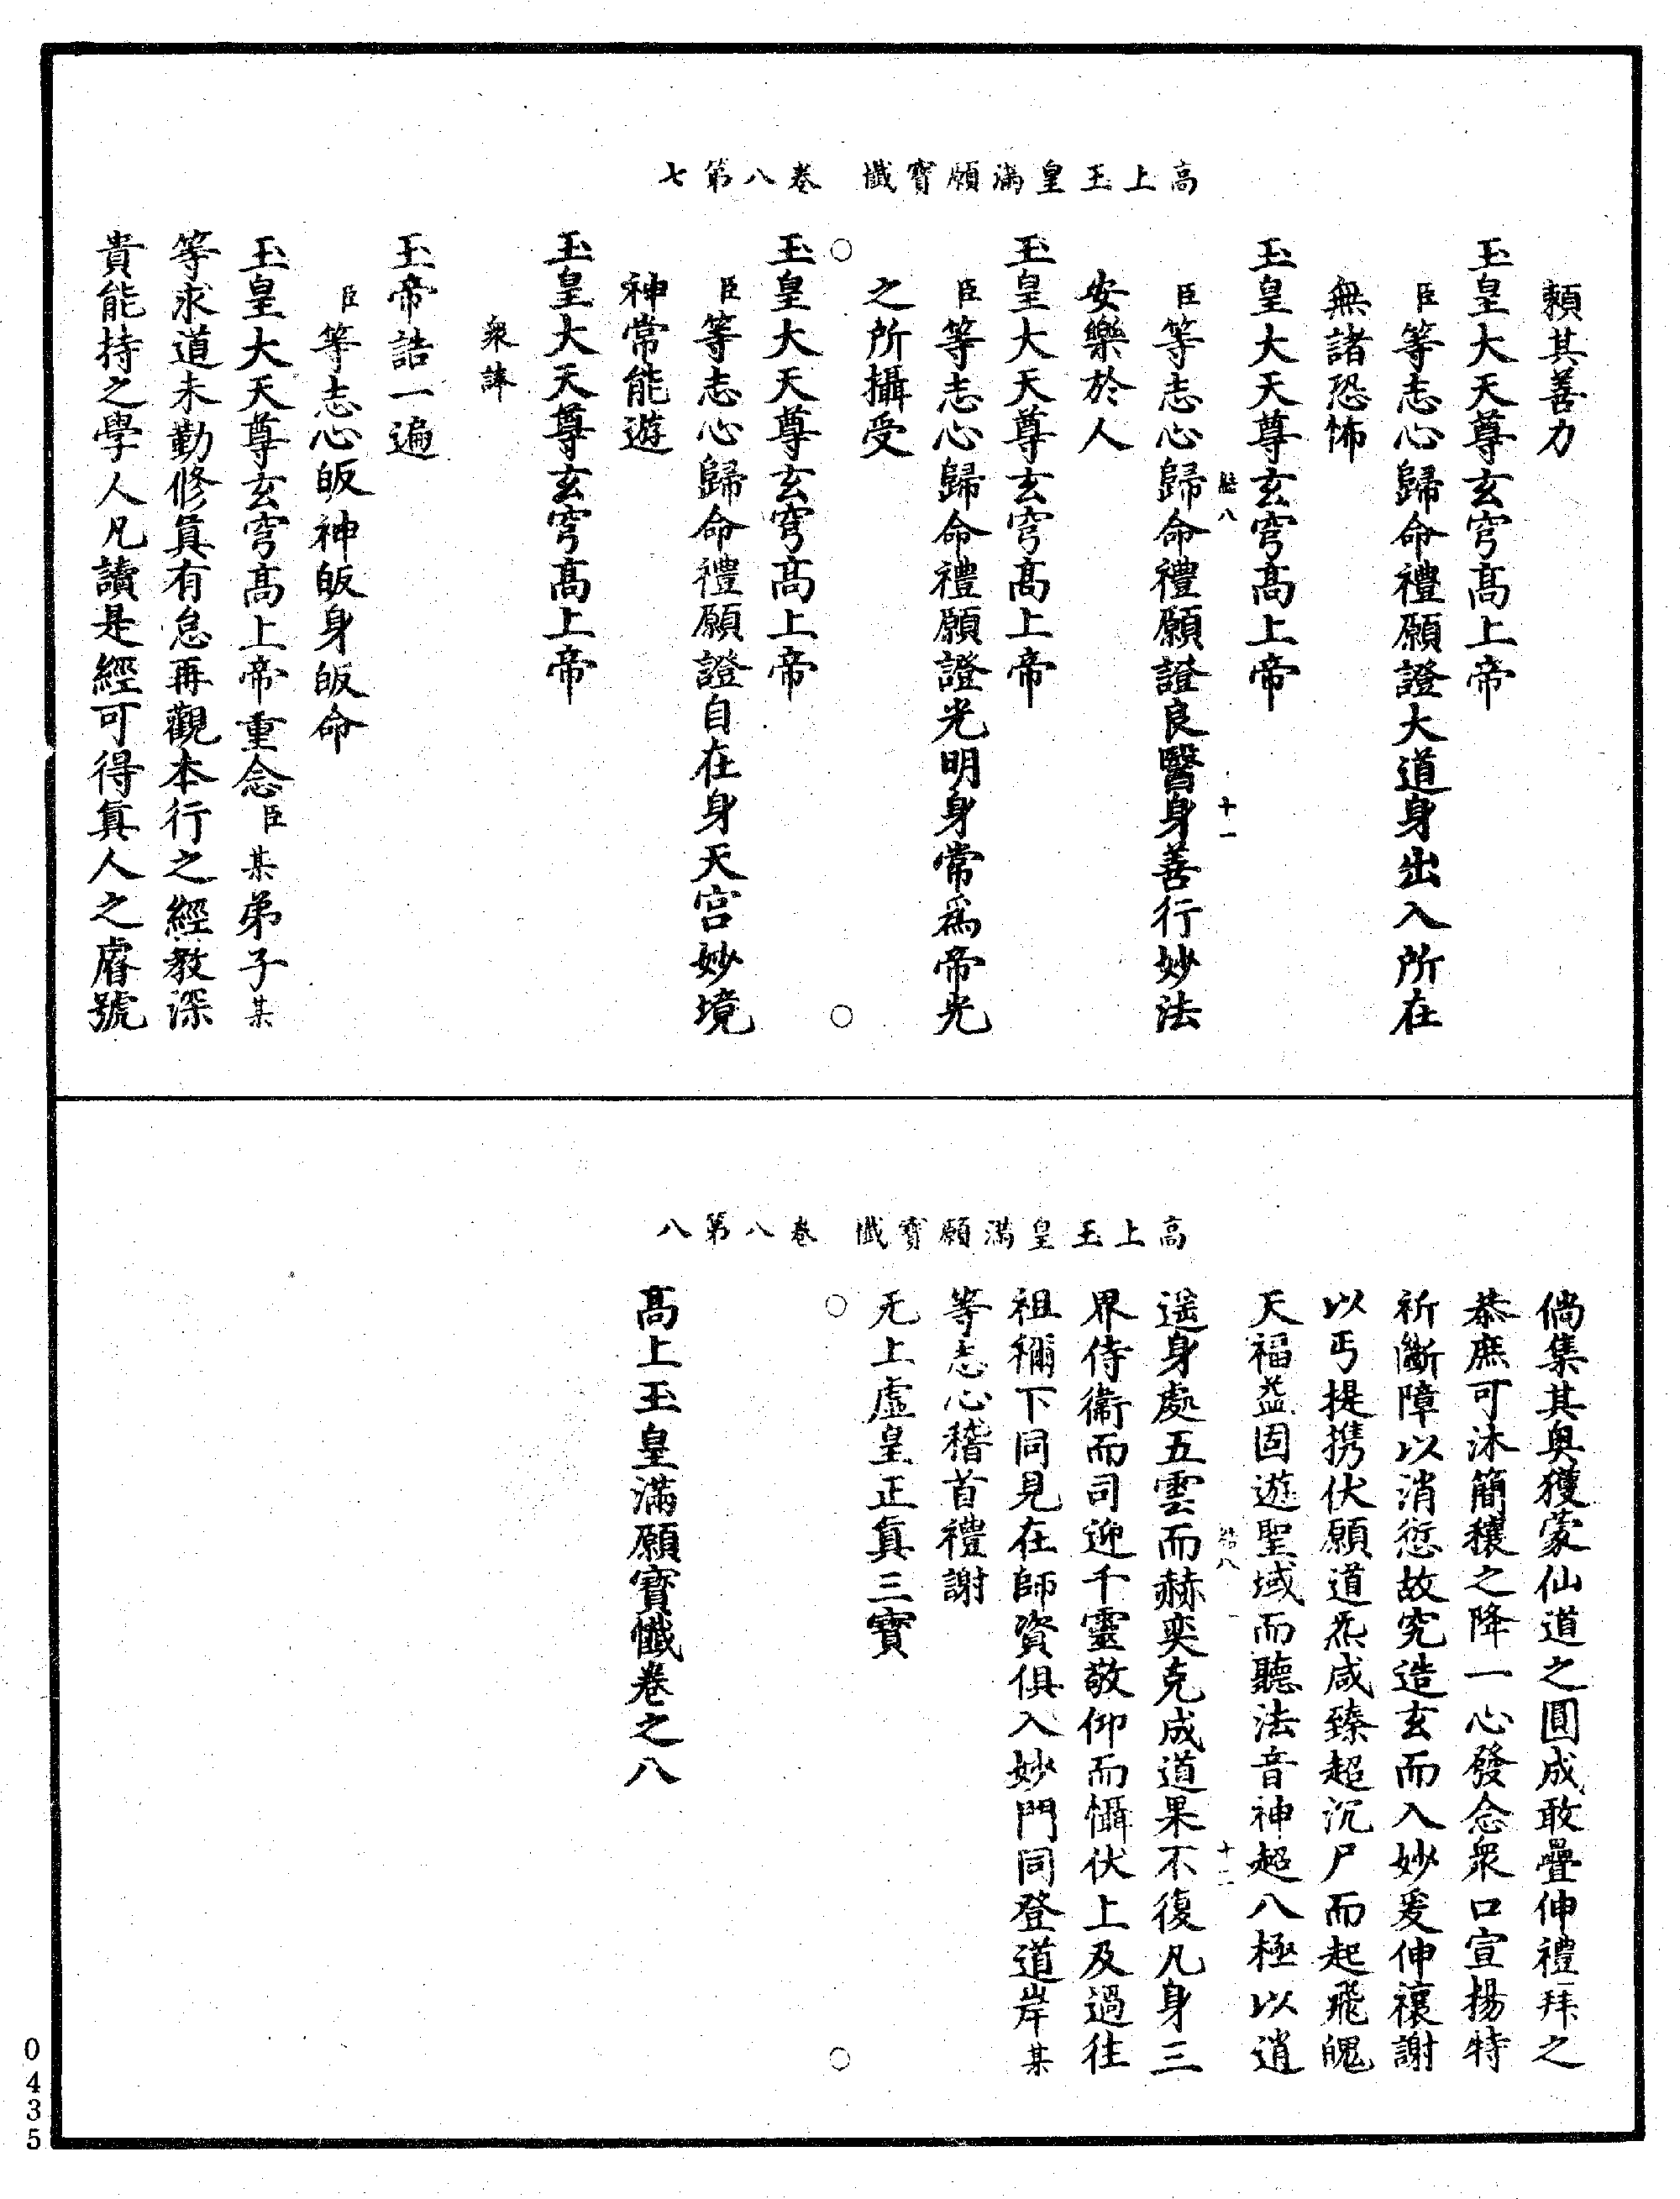 高上玉皇滿願寶懺　卷八第七
賴其善力
玉皇大天尊玄穹高上帝
臣等志心歸命禮願證大道身出入所在
無諸恐怖
玉皇大天尊玄穹高上帝
八　十一
臣等志心歸命禮願證良醫身善行妙法
安樂於人
玉皇大天尊玄穹高上帝
臣等志心歸命禮願證光明身常爲帝光
之所攝受
○　○
玉皇大天尊玄穹高上帝
臣等志心歸命禮願證自在身天宮妙境
神常能遊
玉皇大天尊玄穹高上帝
衆諱
玉帝誥一遍
臣等志心皈神皈身皈命
玉皇大天尊玄穹高上帝重念臣某弟子某
等求道未勤修眞有怠再觀本行之經教深
貴能持之學人凡讀是經可得眞人之睿號
高上玉皇滿願寶懺　卷八第八
倘集其奥獲蒙仙道之圓成敢疊伸禮拜之
恭庶可沐簡穰之降一心發念衆口宣揚特
祈斷障以消愆故究造玄而入妙爰伸禳謝
以丐提携伏願道炁咸臻超沉尸而起飛魄
天福益固遊聖域而聽法音神超八極以逍
八　十二
遥身處五雲而赫奕克成道果不復凡身三
界侍衞而司迎千靈敬仰而懾伏上及過往
祖禰下同見在師資俱入妙門同登道岸某
等志心稽首禮謝
无上虛皇正眞三寶
○　○
高上玉皇滿願寶懺卷之八
0435